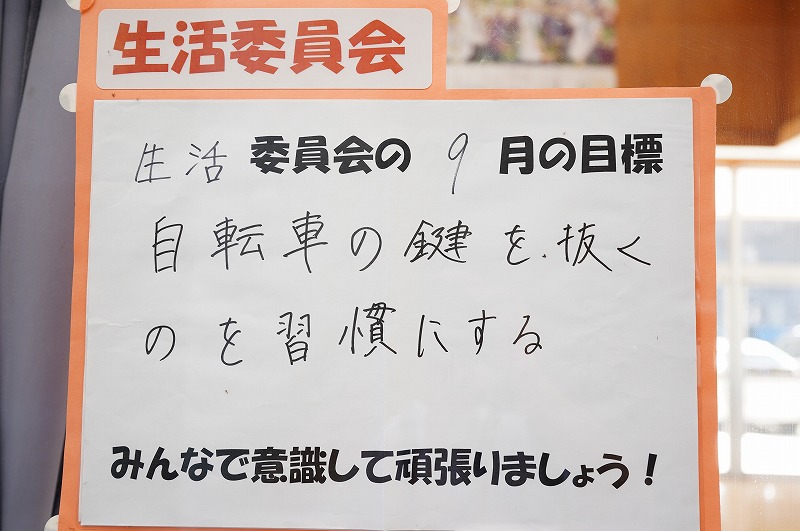 生活委員会
生活 委員会の 9 月の目標
自転車の鍵を抜く
のを習慣にする
みんなで意識して頑張りましょう！